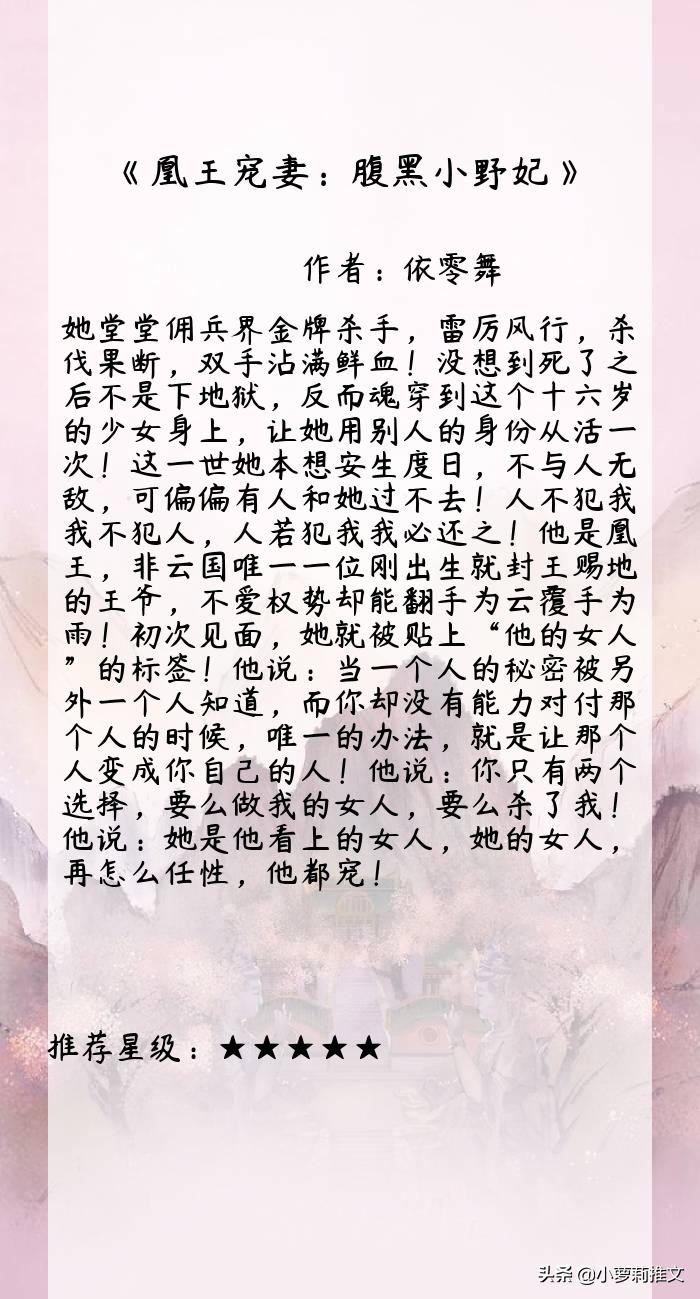 《凰王宠妻：腹黑小野妃》
作者：依零舞
她堂堂佣兵界金牌杀手，雷厉风行，杀
伐果断，双手沾满鲜血！没想到死了之
后不是下地狱，反而魂穿到这个十六岁
的少女身上，让她用别人的身份从活一
次！这一世她本想安生度日，不与人无
敌，可偏偏有人和她过不去！人不犯我
我不犯人，人若犯我我必还之！他是凰
王，非云国唯一一位刚出生就封王赐地
的王爷，不爱权势却能翻手为云覆手为
雨！初次见面，她就被贴上“他的女人
”的标签！他说：当一个人的秘密被另
外一个人知道，而你却没有能力对付那
个人的时候，唯一的办法，就是让那个
人变成你自己的人！他说：你只有两个
选择，要么做我的女人，要么杀了我！
他说：她是他看上的女人，她的女人，
再怎么任性，他都宠！
推荐星级：★★★★★
头条 @小萝莉推文